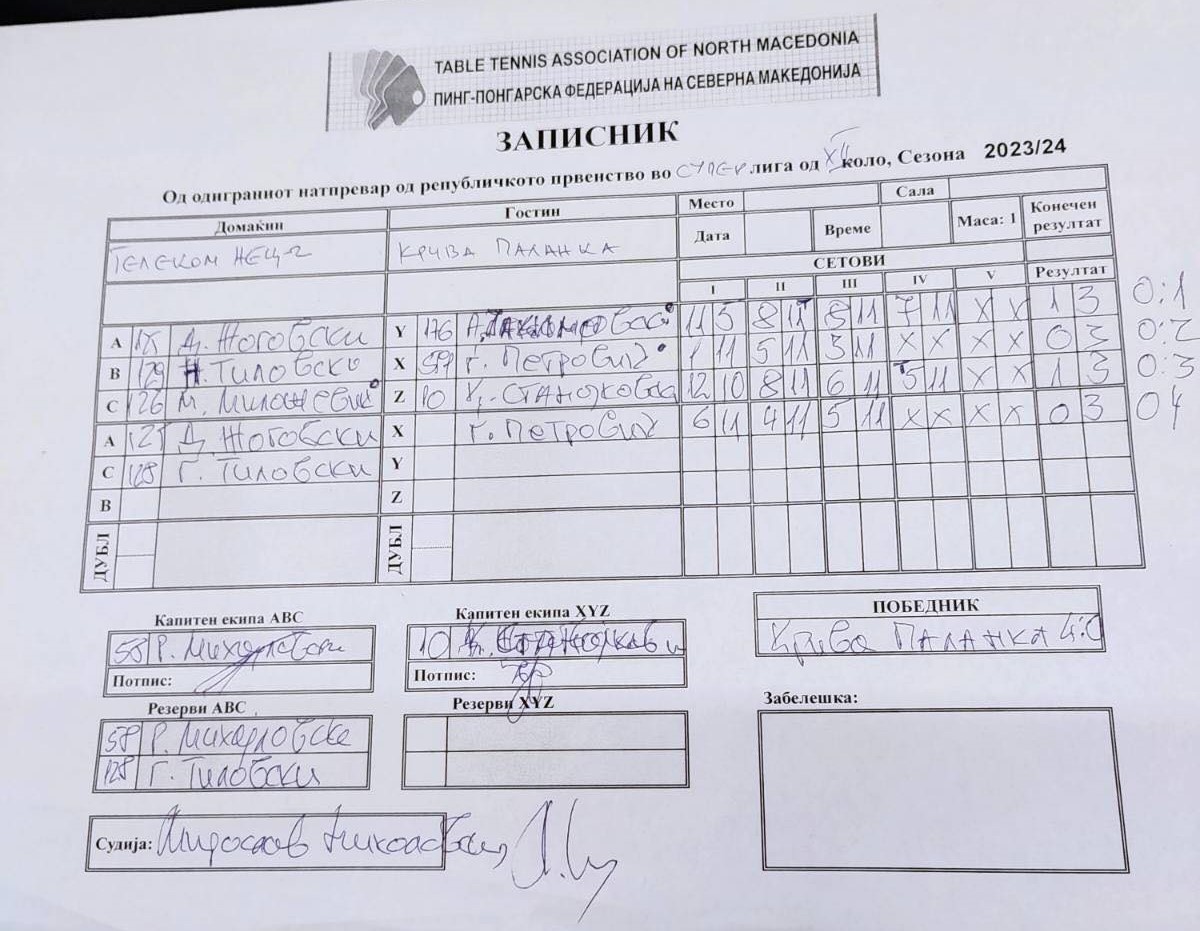 TABLE TENNIS ASSOCIATION OF NORTH MACEDONIA
ПИНГ-ПОНГАРСКА ФЕДЕРАЦИЈА НА СЕВЕРНА МАКЕДОНИЈА
ЗАПИСНИК
Од одиграниот натпревар од републичкото првенство во СУПЕР лига од XII коло, Сезона 2023/24
Домаќин Гостин Место Сала
Дата Време Маса: 1 Конечен резултат
ТЕЛЕКОМ КРИВА ПАЛАНКА
СЕТОВИ
I II III IV V Резултат
A Д. Жоговски Y 176 11 5 8 11 8 11 7 11 X X 1 3 0:1
B 129 Н. Тиловски X Г. Петровиќ 1 11 5 11 3 11 X X X X 0 3 0:2
C 126 М. Милошевиќ Z 10 12 10 8 11 6 11 5 11 X X 1 3 0:3
A 127 Д. Жоговски X Г. Петровиќ 6 11 4 11 5 11 X X X X 0 3 0 4
C 128 Г. Тиловски Y
B Z
ДУБЛ ДУБЛ
Капитен екипа ABC Капитен екипа XYZ ПОБЕДНИК
58 Р. Михајловски 10 Крива ПАЛАНКА 4:0
Потпис: Потпис:
Резерви ABC Резерви XYZ Забелешка:
58 Р. Михајловски
128 Г. Тиловски
Судија: Мирослав